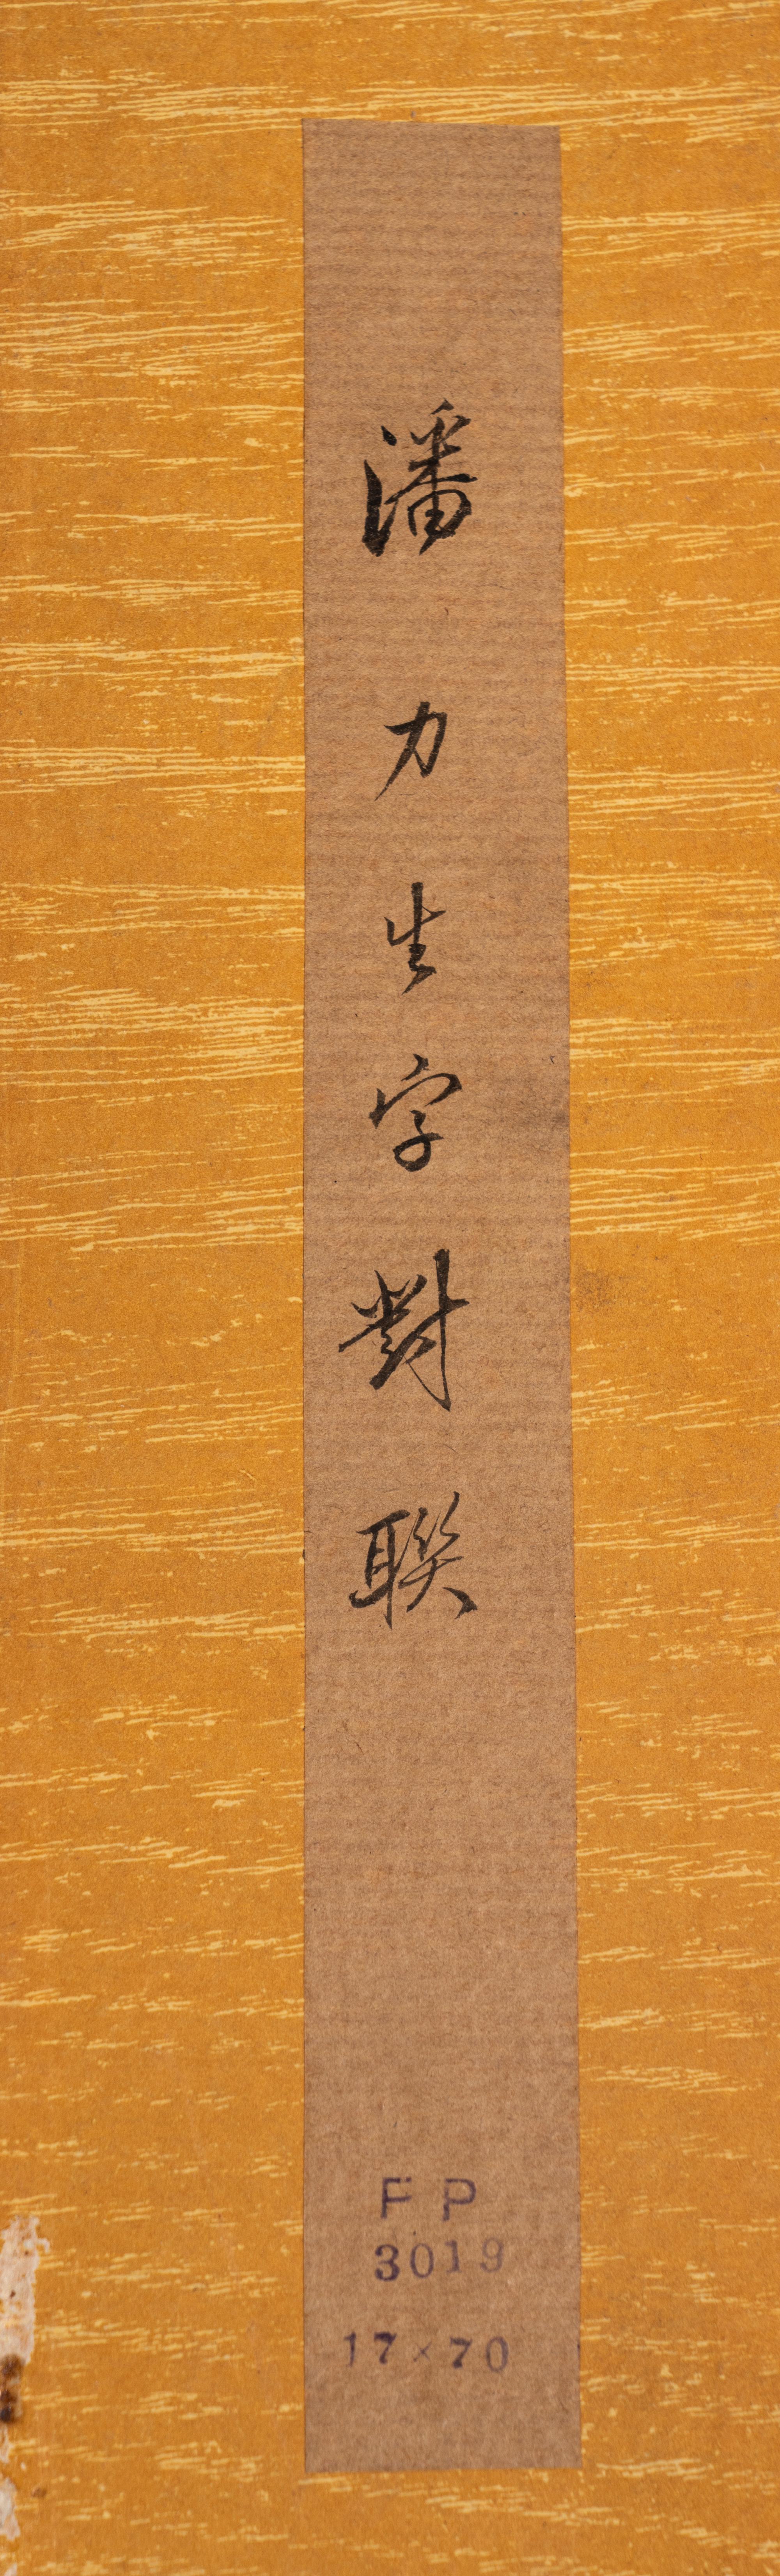 潘力生字對聯
FP
3019
17×70